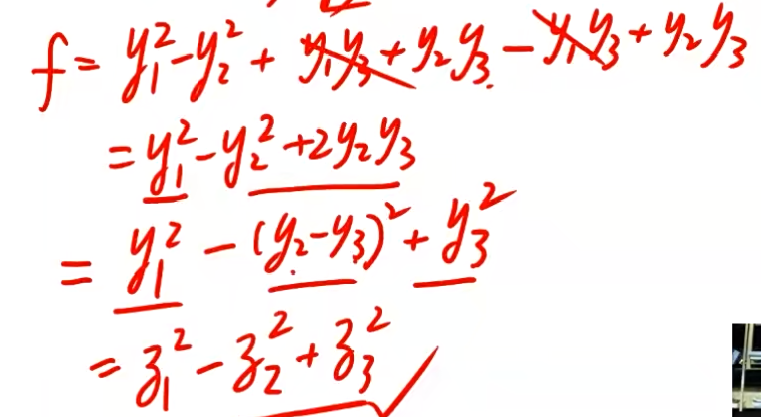 f = y₁² - y₂² + y₁y₃ + y₂y₃ - y₁y₃ + y₂y₃
= y₁² - y₂² + 2y₂y₃
= y₁² - (y₂ - y₃)² + y₃²
= z₁² - z₂² + z₃²